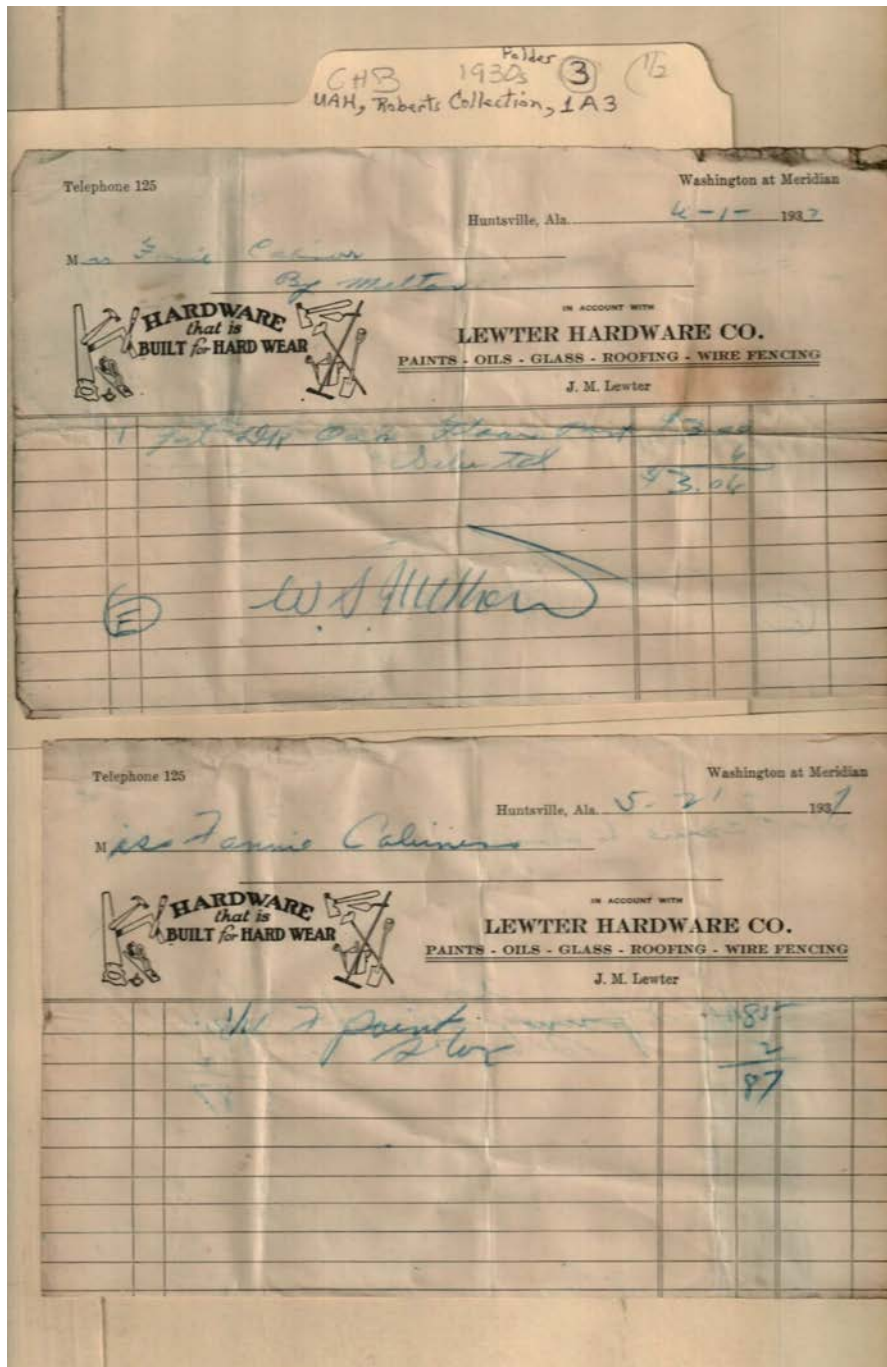 Folder
CHB 1930s 3 (1/2
UAH, Roberts Collection, 1A3
Telephone 125 Washington at Meridian
Huntsville, Ala. 4-1- 1937
M
By Melton
HARDWARE
that is
BUILT for HARD WEAR
IN ACCOUNT WITH
LEWTER HARDWARE CO.
PAINTS - OILS - GLASS - ROOFING - WIRE FENCING
J. M. Lewter
1 Oak $3.00
6
$3.06
E
Telephone 125 Washington at Meridian
Huntsville, Ala. 5-21 1937
Miss Fannie Cabiness
HARDWARE
that is
BUILT for HARD WEAR
IN ACCOUNT WITH
LEWTER HARDWARE CO.
PAINTS - OILS - GLASS - ROOFING - WIRE FENCING
J. M. Lewter
paint 85
2
87